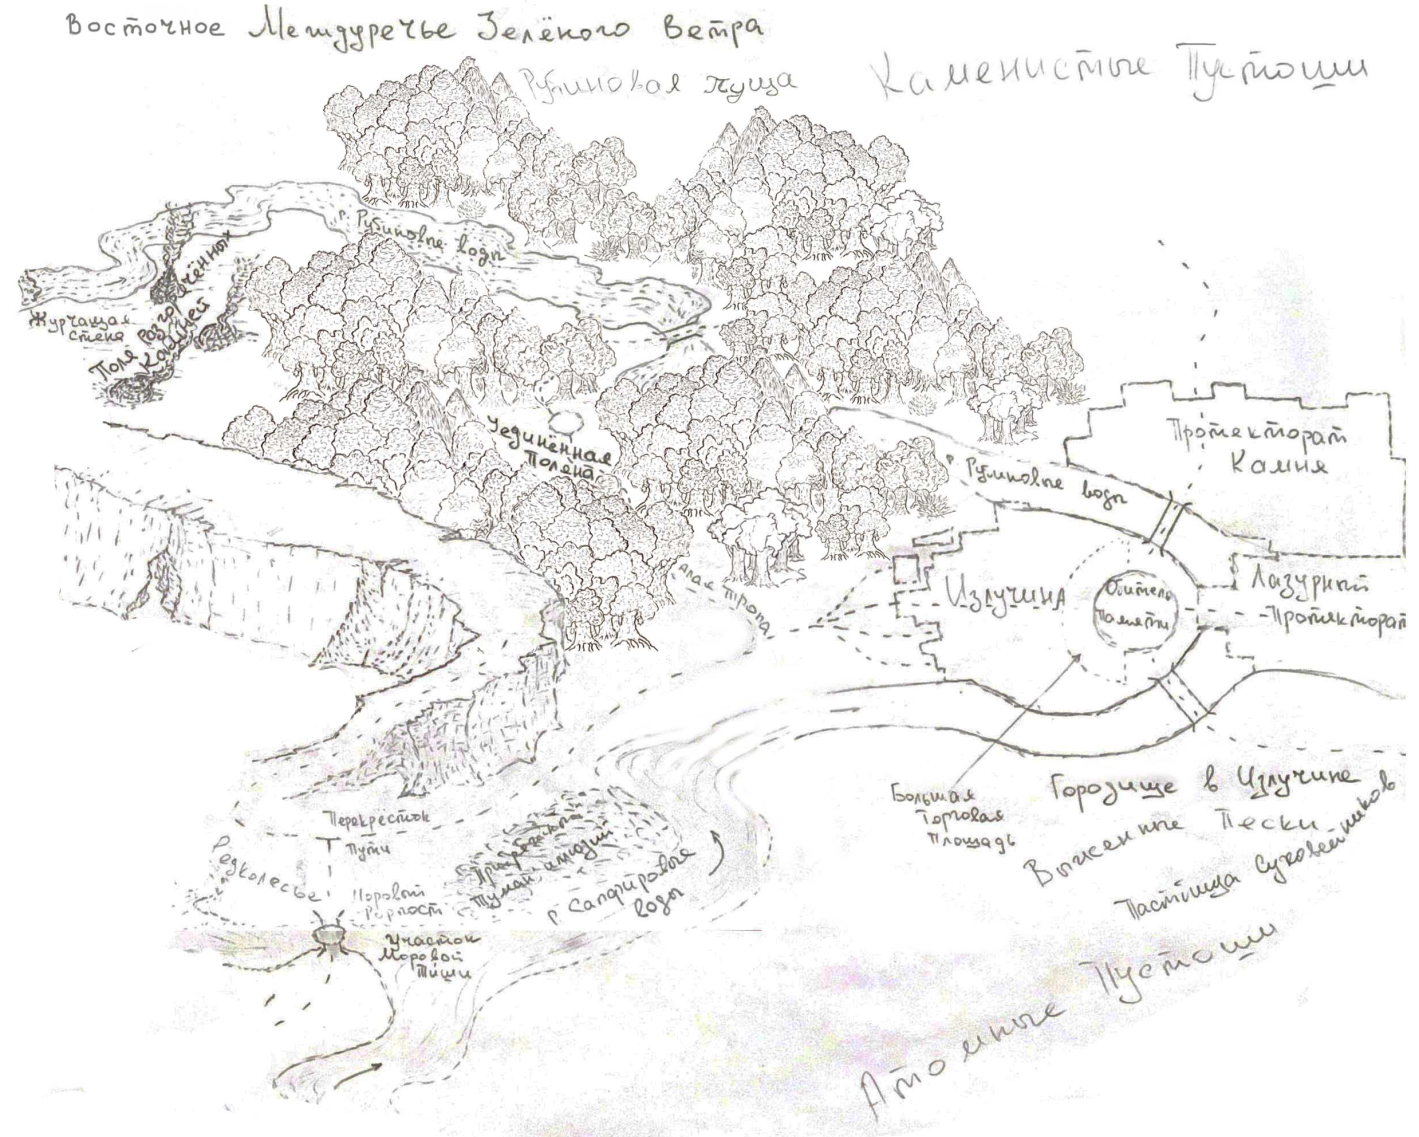 Восточное Междуречье Зелёного Ветра
Рубиновая пуща
Каменистые Пустоши
р. Рубиновые воды
Журчащая
Стена
Поле разгоряченных
Камней
Уединённая
Поляна
Протекторат
Камня
р. Рубиновые воды
Алая тропа
Излучина
Обитель
Памяти
Лазурный
-Протекторат
Большая
Торговая
Площадь
Городище в Излучине
Выжженные Пески
Пастбища Суховейников
Атомные Пустоши
Перекрёсток
Пути
Редколесье
Моровый
Форпост
Туман иллюзий
р. Сапфировые
воды
Участок
Моровой
Тиши